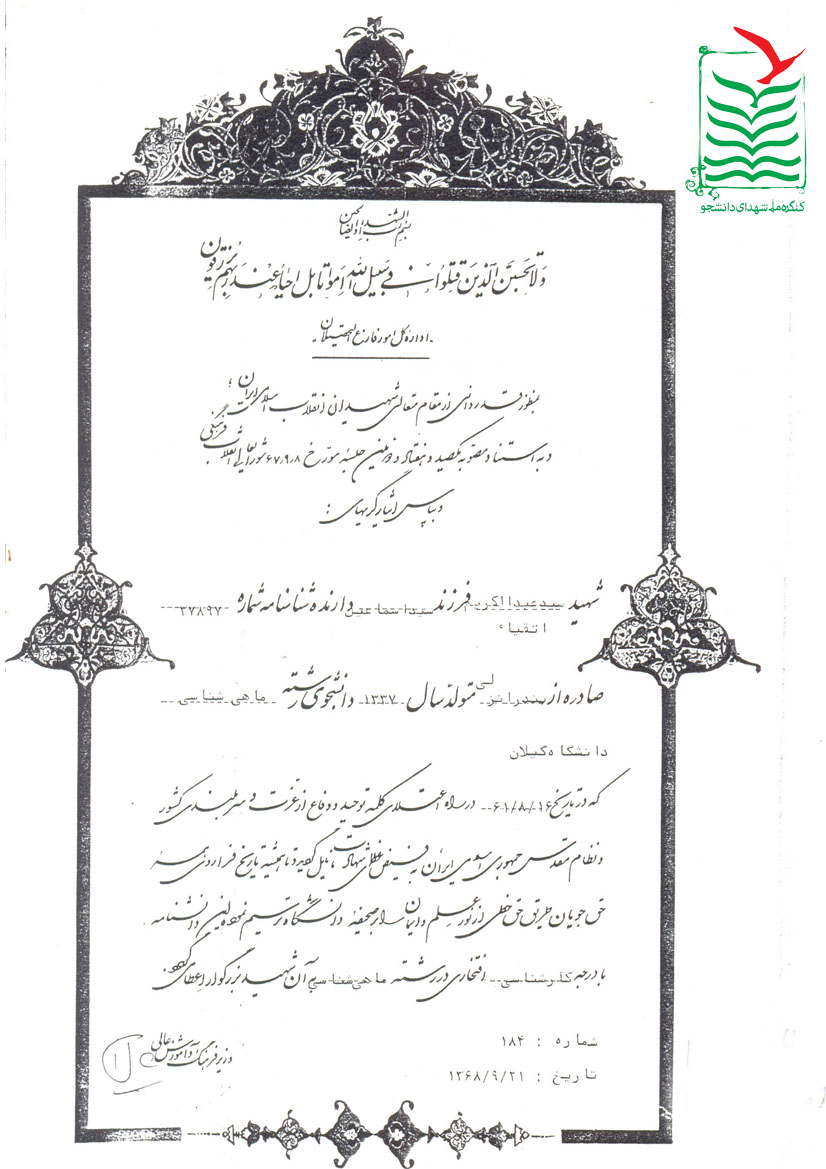 کنگره ملی شهدای دانشجو
بسم رب الشهداء و الصالحین
ولا تحسبن الذین قتلوا فی سبیل الله امواتا بل احیاء عند ربهم یرزقون
اداره کل امور فارغ التحصیلان
بمنظور قدردانی از مقام متعالی شهیدان انقلاب اسلامی ایران،
و به استناد مصوبه یکصد و هفتاد و دومین جلسه مورخ ۶۷٫۹٫۸ شورایعالی انقلاب فرهنگی
و بپاس ایثارگریهای :
شهید سیدعبدالکریم فرزند سیداسماعیل دارنده شناسنامه شماره ۳۷۸۹۷
اتقیاء
صادره از بندرانزلی متولد سال ۱۳۳۷ دانشجوی رشته ماهی شناسی
دانشگاه گیلان
که در تاریخ ۶۱/۸/۱۶ در راه اعتلای کلمه توحید و دفاع از عزت و سربلندی کشور
و نظام مقدس جمهوری اسلامی ایران به فیض عظمای شهادت نایل گردید تا همیشه تاریخ فراروی همه
حق جویان طریق حق خطی از نور علم و ایمان را بر صحیفه دانشگاه ترسیم نموده این دانشنامه
با درجه کارشناسی افتخاری در رشته ماهی شناسی به آن شهید بزرگوار اعطا می گردد.
شماره : ۱۸۴
وزیر فرهنگ و آموزش عالی
تاریخ : ۱۳۶۸/۹/۲۱